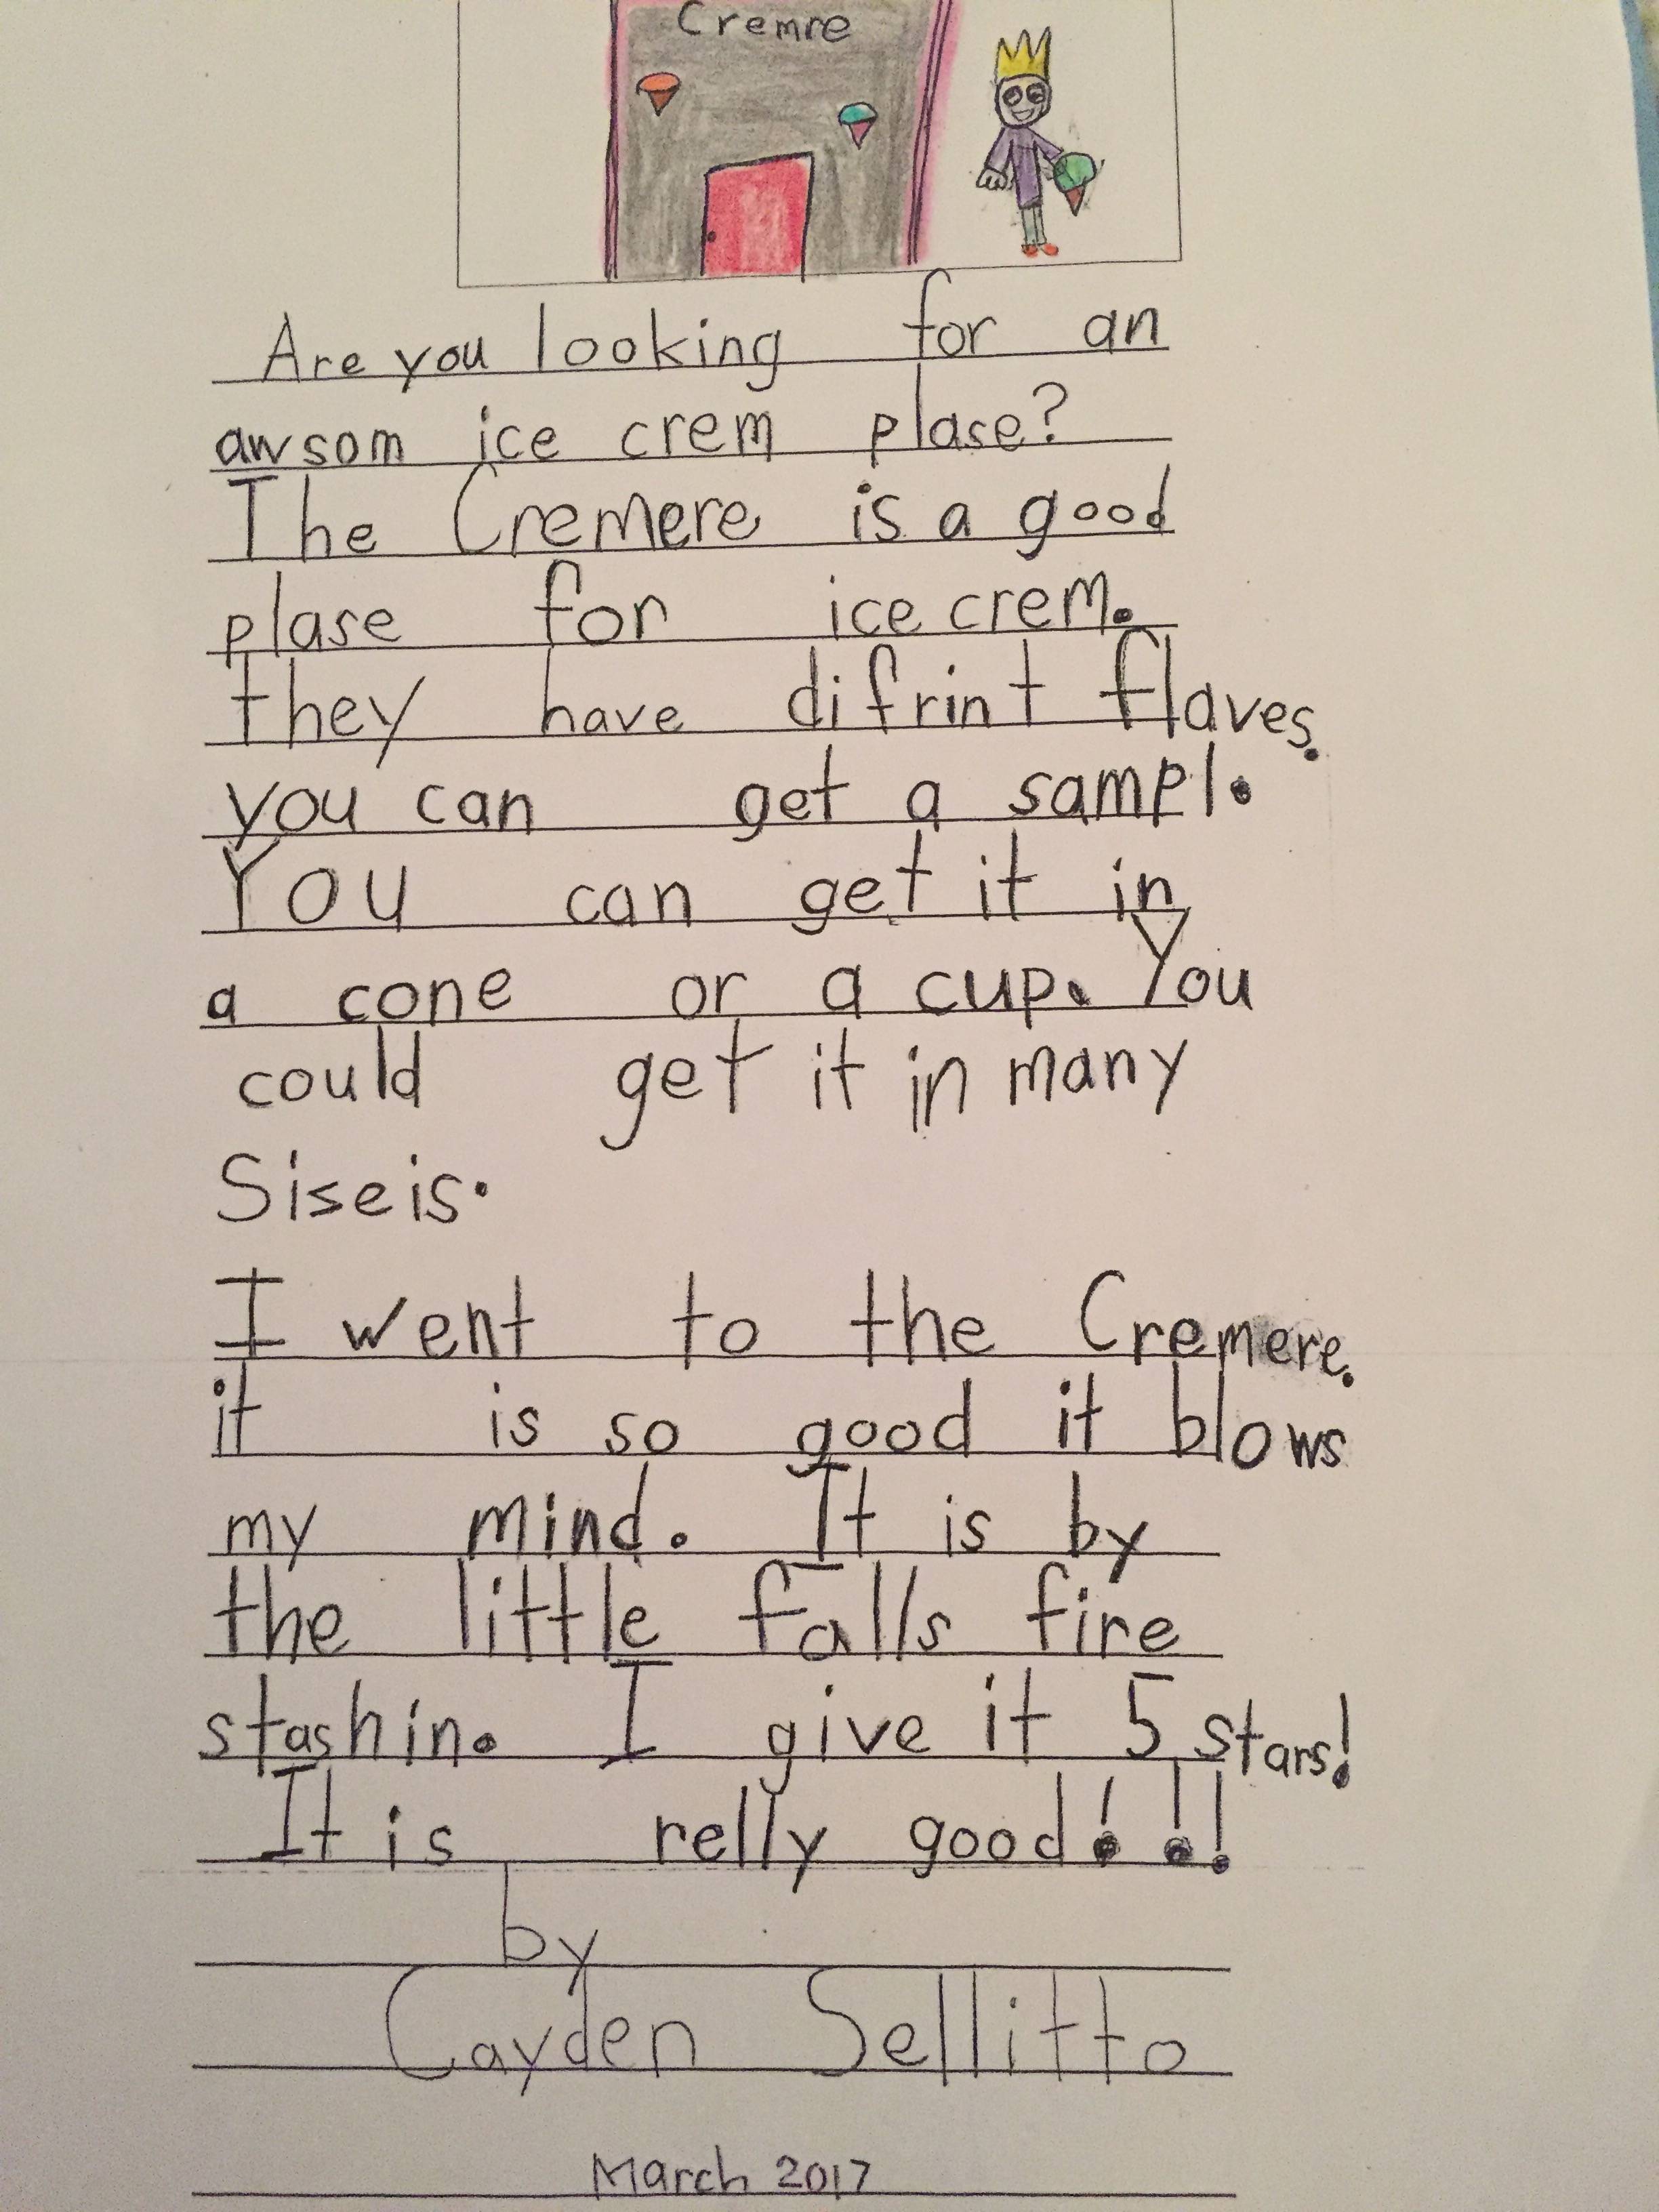 Cremre
Are you looking for an
awsom ice crem plase?
The Cremere is a good
plase for ice crem.
they have difrint flaves.
you can get a sampl.
You can get it in
a cone or a cup. You
could get it in many
Siseis.
I went to the Cremere.
it is so good it blows
my mind. It is by
the little falls fire
stashin. I give it 5 stars!
It is relly good!!!
by
Cayden Sellitto
March 2017